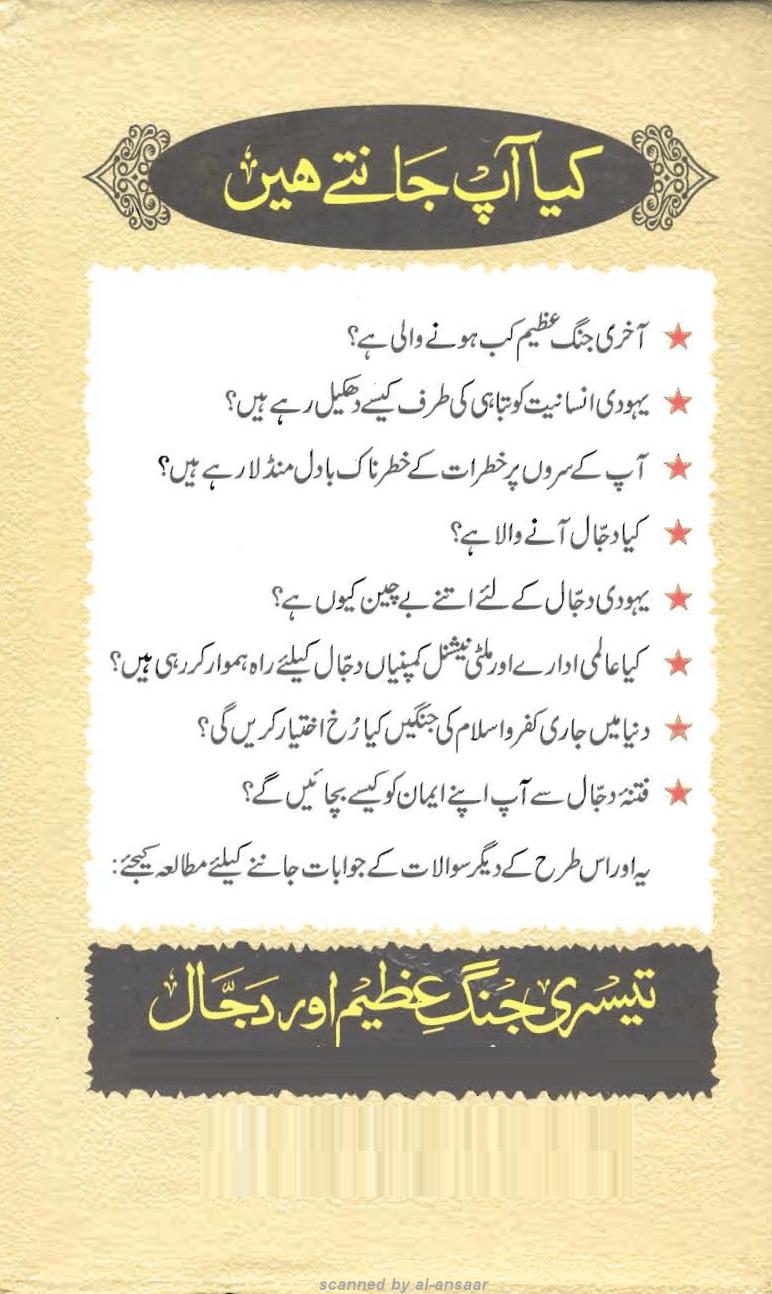 کیا آپ جانتے ھیں
آخری جنگ عظیم کب ہونے والی ہے؟
یہودی انسانیت کو تباہی کی طرف کیسے دھکیل رہے ہیں؟
آپ کے سروں پر خطرات کے خطرناک بادل منڈلا رہے ہیں؟
کیا دجّال آنے والا ہے؟
یہودی دجّال کے لئے اتنے بے چین کیوں ہے؟
کیا عالمی ادارے اور ملٹی نیشنل کمپنیاں دجّال کیلئے راہ ہموار کر رہی ہیں؟
دنیا میں جاری کفر و اسلام کی جنگیں کیا رُخ اختیار کریں گی؟
فتنۂ دجّال سے آپ اپنے ایمان کو کیسے بچائیں گے؟
یہ اور اس طرح کے دیگر سوالات کے جوابات جاننے کیلئے مطالعہ کیجئے:
تیسری جنگِ عظیم اور دَجَّال
scanned by al-ansaar